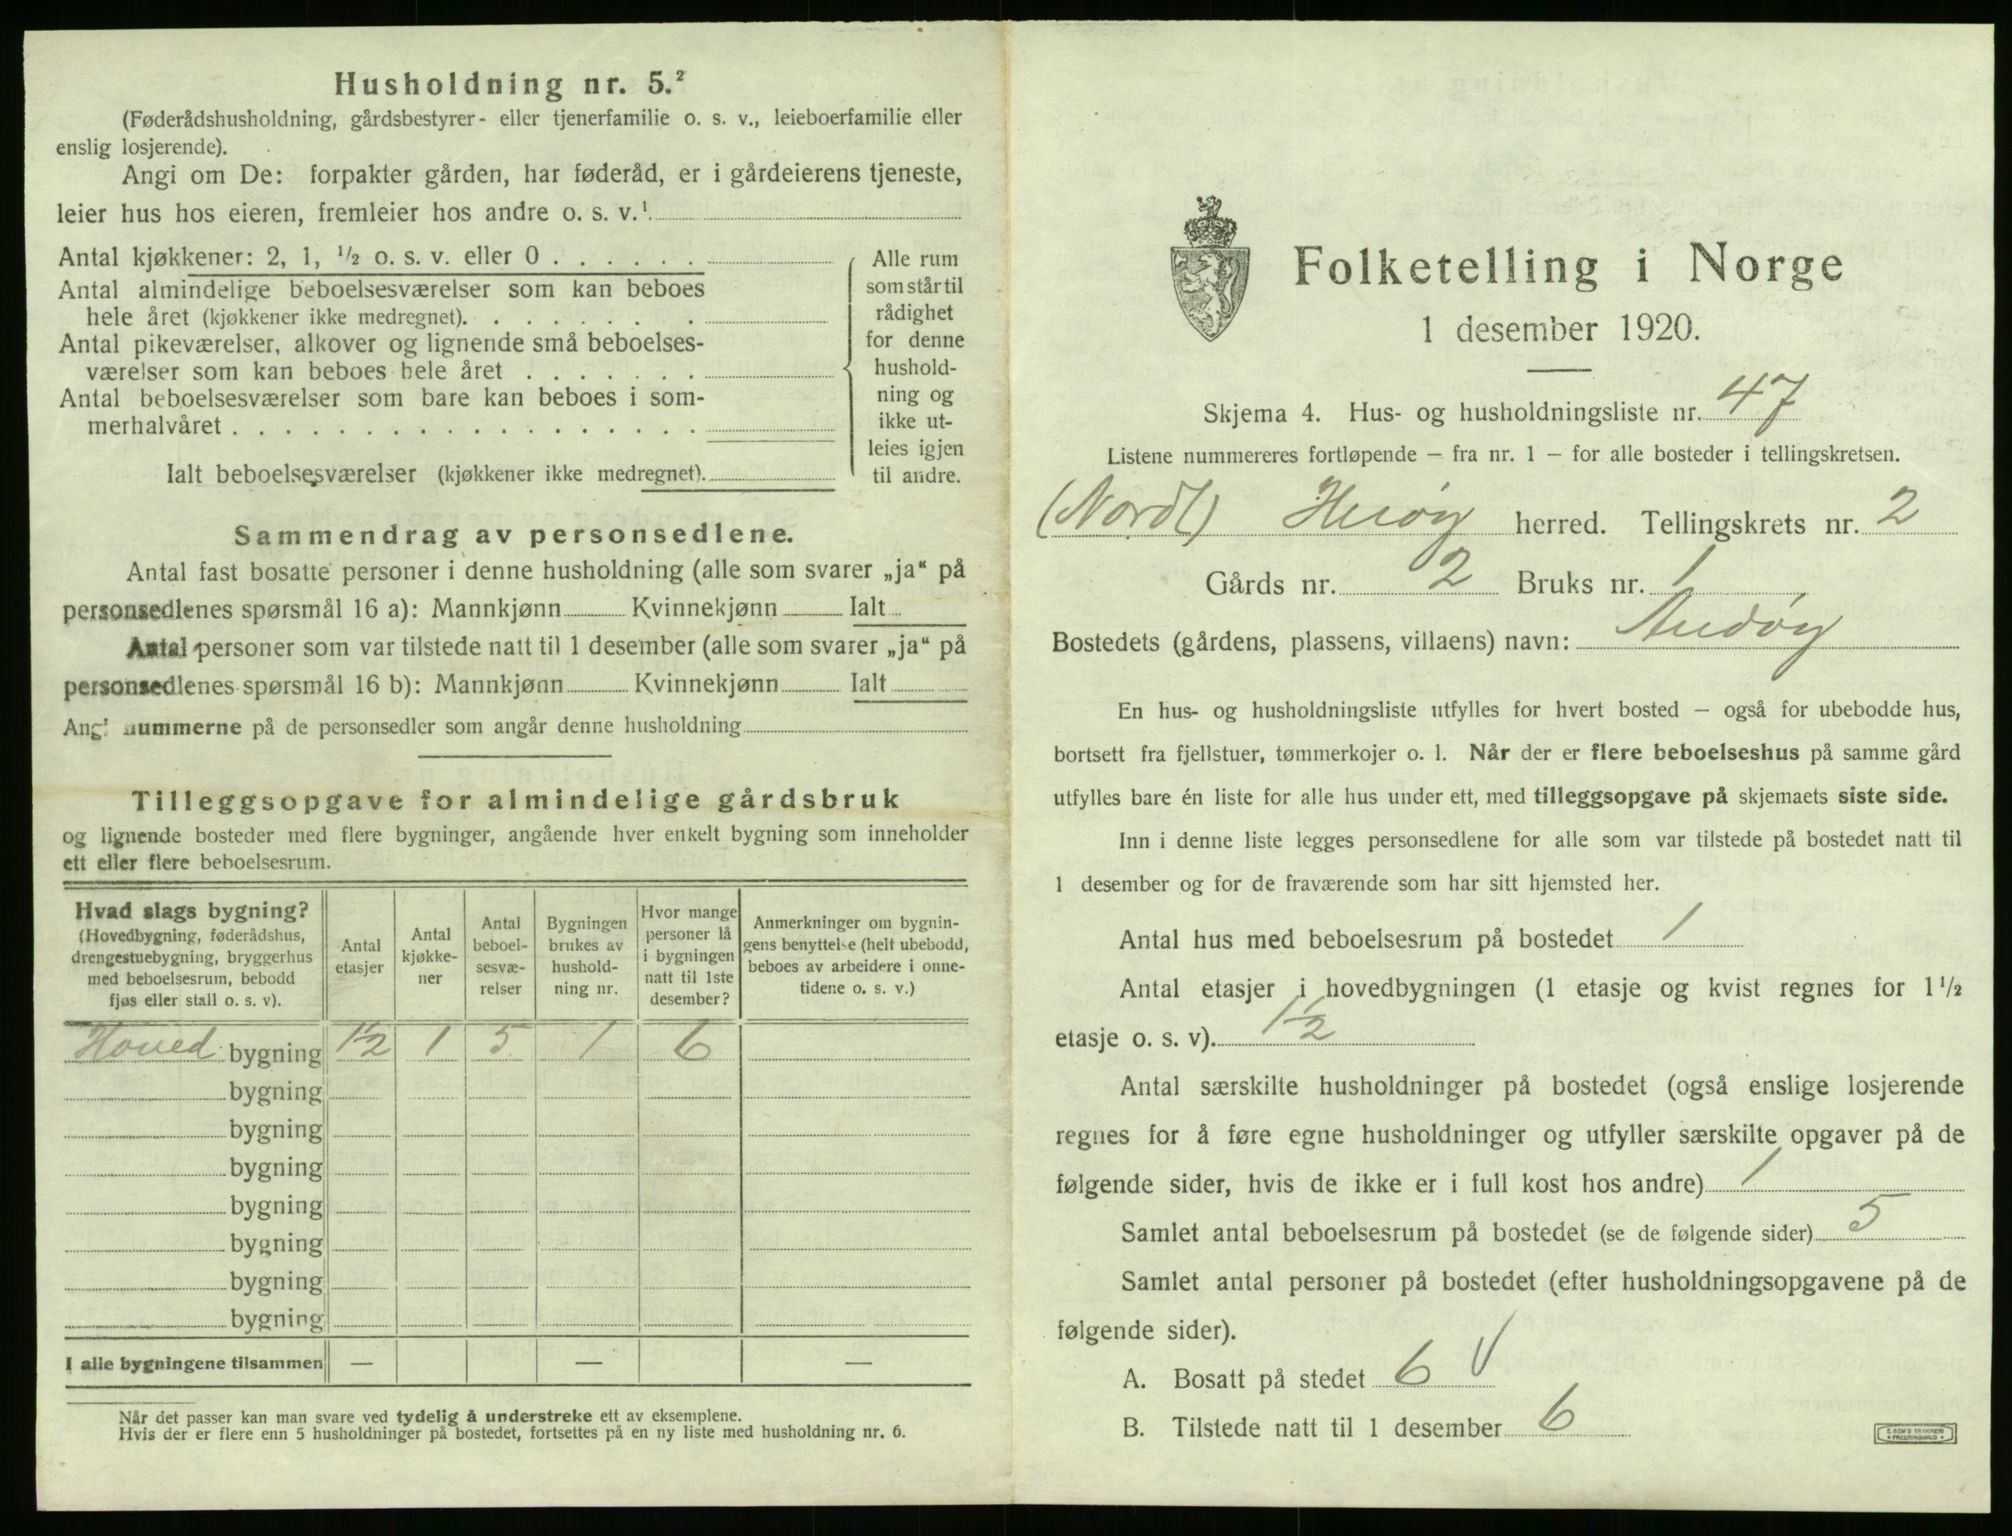 Husholdning nr. 5.²
(Føderådshusholdning, gårdsbestyrer- eller tjenerfamilie o. s. v., leieboerfamilie eller
enslig losjerende).
Angi om De: forpakter gården, har føderåd, er i gårdeierens tjeneste,
leier hus hos eieren, fremleier hos andre o. s. v.¹
Antal kjøkkener: 2, 1, ½ o. s. v. eller 0 . . . . . .
Antal almindelige beboelsesværelser som kan beboes
hele året (kjøkkener ikke medregnet). . . . . . . . .
Antal pikeværelser, alkover og lignende små beboelses-
værelser som kan beboes hele året . . . . . . .
Antal beboelsesværelser som bare kan beboes i som-
merhalvåret . . . . . . . . . . . . . . . . . .
Ialt beboelsesværelser (kjøkkener ikke medregnet).
Alle rum
som står til
rådighet
for denne
hushold-
ning og
ikke ut-
leies igjen
til andre.
Sammendrag av personsedlene.
Antal fast bosatte personer i denne husholdning (alle som svarer „ja“ på
personsedlenes spørsmål 16 a): Mannkjønn Kvinnekjønn Ialt
Antal personer som var tilstede natt til 1 desember (alle som svarer „ja“ på
personsedlenes spørsmål 16 b): Mannkjønn Kvinnekjønn Ialt
Angi nummerne på de personsedler som angår denne husholdning
Tilleggsopgave for almindelige gårdsbruk
og lignende bosteder med flere bygninger, angående hver enkelt bygning som inneholder
ett eller flere beboelsesrum.
Hvad slags bygning?
(Hovedbygning, føderådshus,
drengestuebygning, bryggerhus
med beboelsesrum, bebodd
fjøs eller stall o. s. v).
Antal
etasjer
Antal
kjøkke-
ner
Antal
beboel-
sesvæ-
relser
Bygningen
brukes av
hushold-
ning nr.
Hvor mange
personer lå
i bygningen
natt til 1ste
desember?
Anmerkninger om bygnin-
gens benyttelse (helt ubebodd,
beboes av arbeidere i onne-
tidene o. s. v.)
Hoved bygning 1½ 1 5 1 6
bygning
bygning
bygning
bygning
bygning
bygning
bygning
I alle bygningene tilsammen — — —
Når det passer kan man svare ved tydelig å understreke ett av eksemplene.
Hvis der er flere enn 5 husholdninger på bostedet, fortsettes på en ny liste med husholdning nr. 6.
Folketelling i Norge
1 desember 1920.
Skjema 4. Hus- og husholdningsliste nr. 47
Listene nummereres fortløpende – fra nr. 1 – for alle bosteder i tellingskretsen.
(Nordl) Herøy herred. Tellingskrets nr. 2
Gårds nr. 2 Bruks nr. 1
Bostedets (gårdens, plassens, villaens) navn: Andøy
En hus- og husholdningsliste utfylles for hvert bosted – også for ubebodde hus,
bortsett fra fjellstuer, tømmerkojer o. l. Når der er flere beboelseshus på samme gård
utfylles bare én liste for alle hus under ett, med tilleggsopgave på skjemaets siste side.
Inn i denne liste legges personsedlene for alle som var tilstede på bostedet natt til
1 desember og for de fraværende som har sitt hjemsted her.
Antal hus med beboelsesrum på bostedet 1
Antal etasjer i hovedbygningen (1 etasje og kvist regnes for 1½
etasje o. s. v). 1½
Antal særskilte husholdninger på bostedet (også enslige losjerende
regnes for å føre egne husholdninger og utfyller særskilte opgaver på de
følgende sider, hvis de ikke er i full kost hos andre) 1
Samlet antal beboelsesrum på bostedet (se de følgende sider) 5
Samlet antal personer på bostedet (efter husholdningsopgavene på de
følgende sider).
A. Bosatt på stedet 6 V
B. Tilstede natt til 1 desember 6